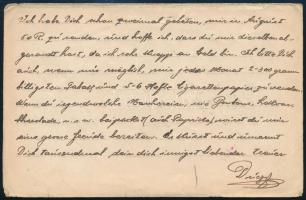 Ich habe Dich schon zweimal gebeten, mir im August
50 R. zu senden, und hoffe ich, dass du mir dieselben ab-
gesandt hast, da ich sehr knapp an Geld bin. Ich bitte Dich
auch, wenn nur möglich, mir jeden Monat 2-300 gram
billigsten Tabak und 5-6 Hefte Cigarettenpapier zu senden.
Wenn du irgendwelche Näschereien, wie
Chocolade, u.s.w. beipackst, wirst du mir
eine grosse Freude bereiten. Es küsst und umarmt
Dich tausendmal dein dich innigst liebender treuer